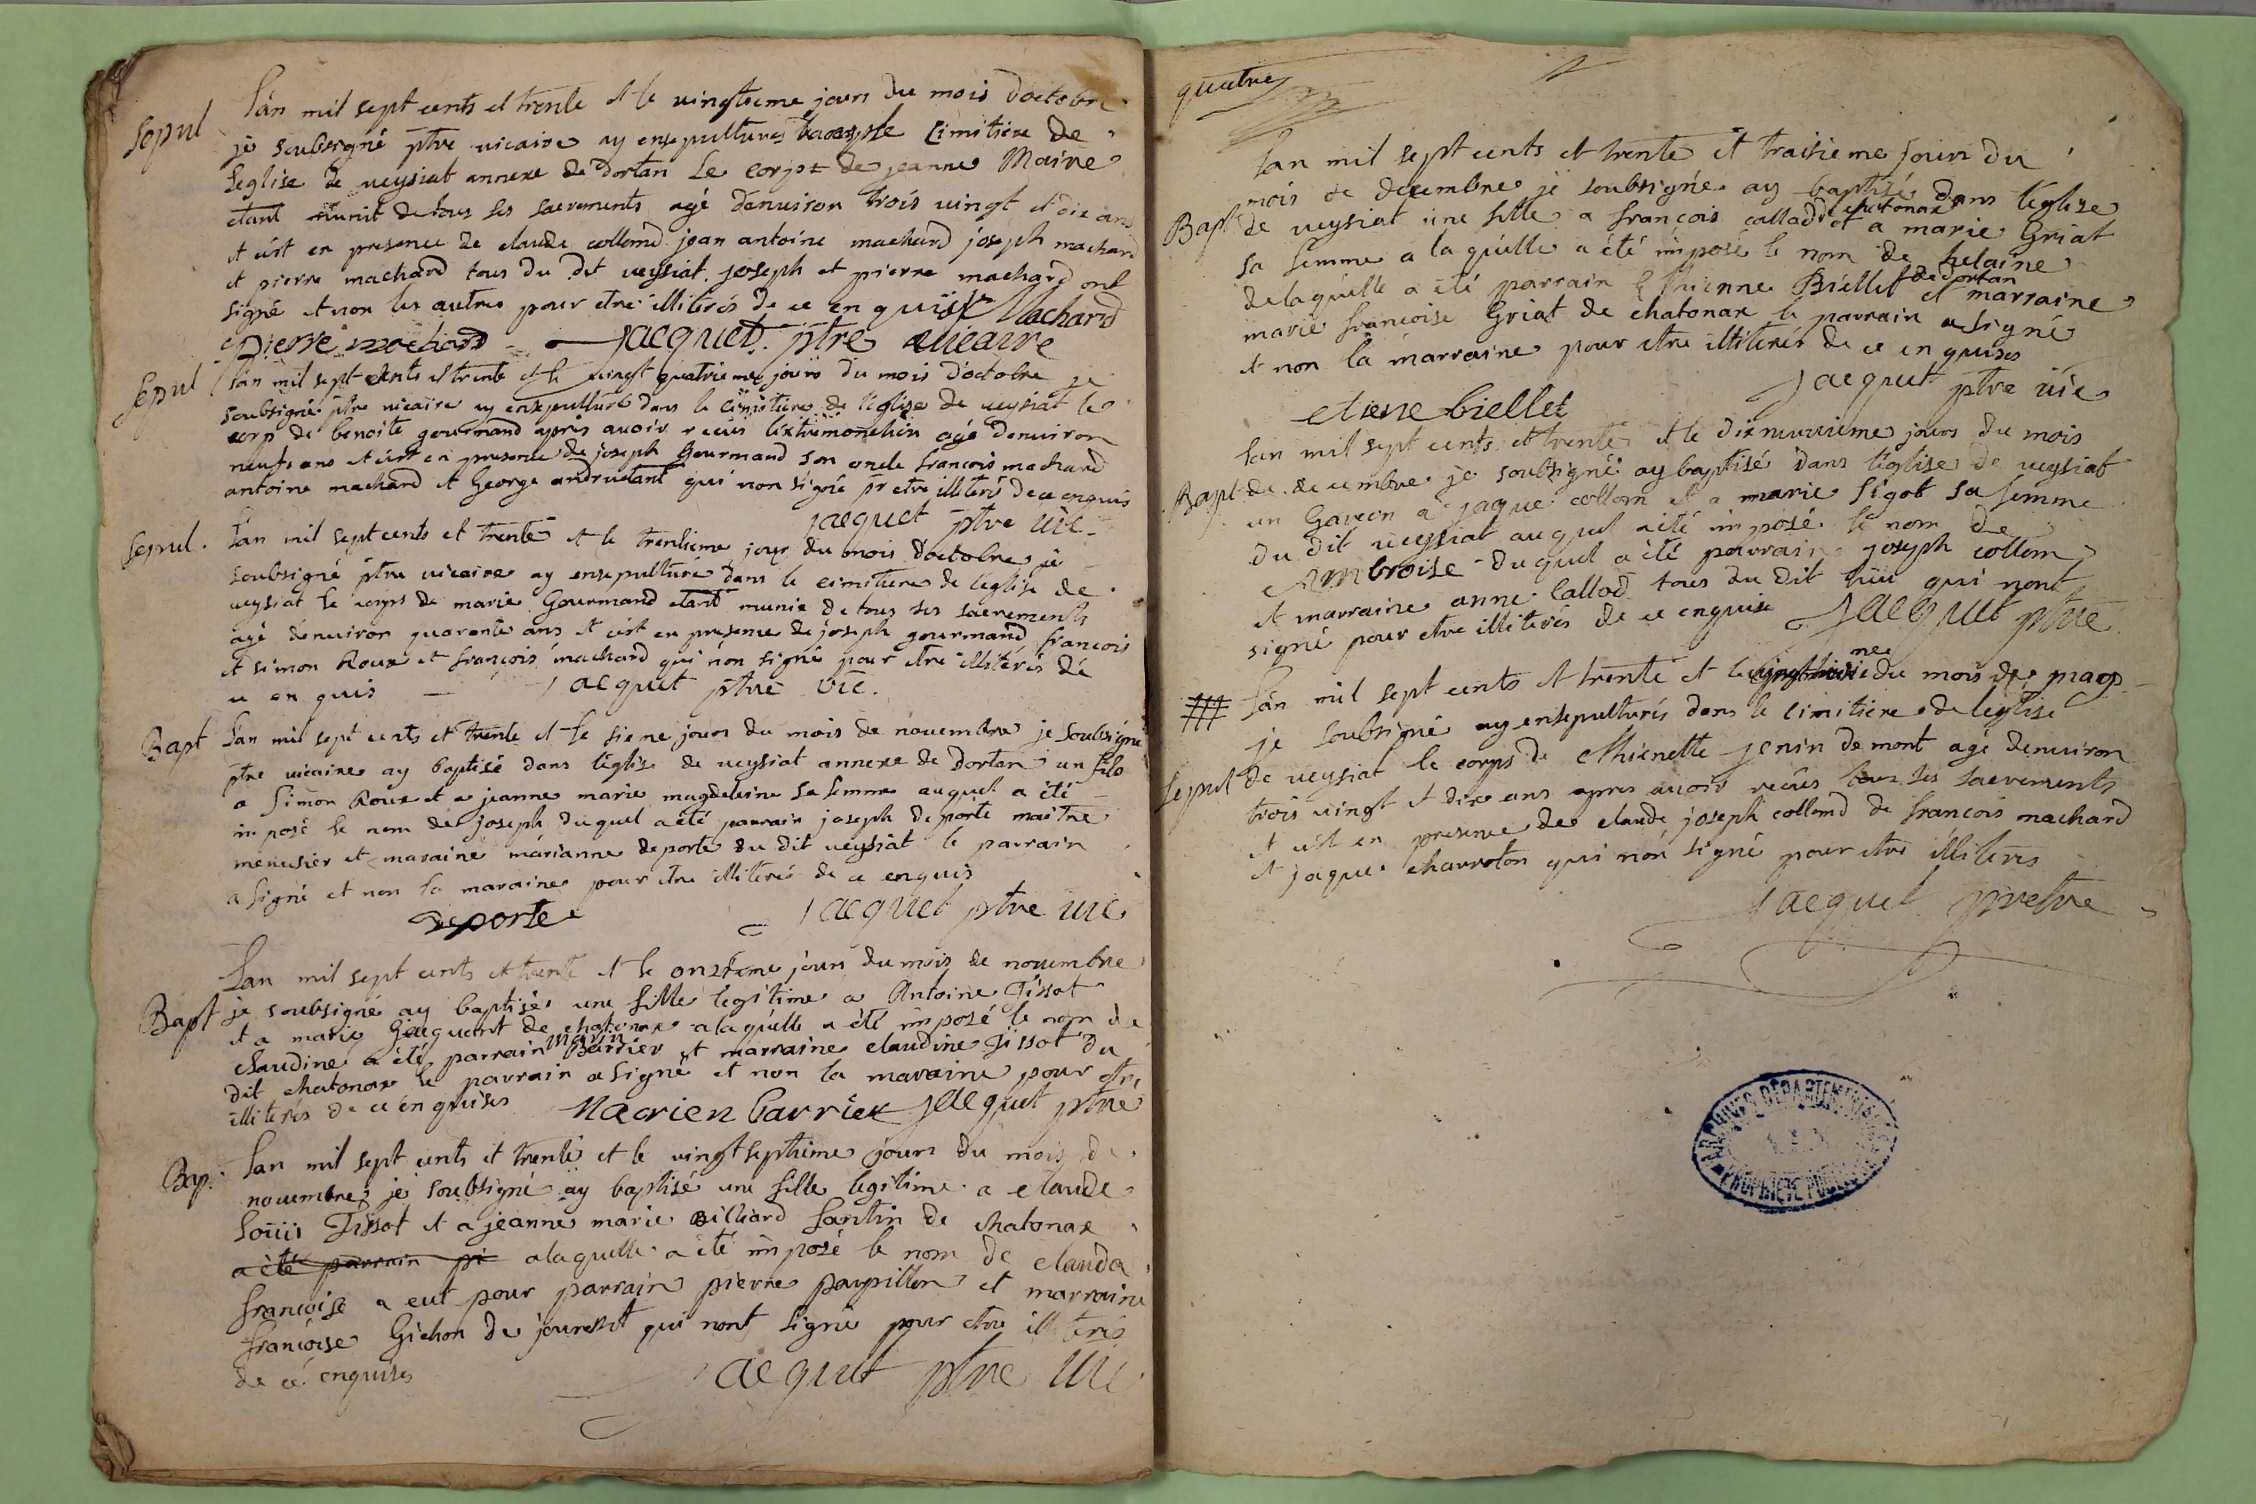 Sepul
Lan mil sept cents et trente et le vingtieme jours du mois doctobre
je soubsigné ptre vicaire ay ensepulturés cimitiere de
leglise de veysiat annexe de dortan Le corps de jeanne Maire
etant munit de tous ses sacrements agé denviron trois vingt et dix ans
et cest en presence de claude collomd jean antoine machard joseph machard
et pierre machard tous du dit veysiat joseph et pierre machard ont
signé et non les autres pour etre illiterés de ce en quis
Machard
pierre mochard jacquet ptre vicaire
Sepul
Lan mil sept cents et trente et le vingt quatrieme jours du mois doctobre je
soubsigné ptre vicaire ay ensepulturé dans le cimitiere de léglise de veysiat le
corp de benoite gourmand apres avoir recüs agé denviron
neufs ans et cest en presence de joseph Gourmand son oncle francois machard
antoine machard et George qui non signé pr etre illiteré de ce enquis
jacquet ptre vic
Sepul.
Lan mil sept cents et trente et le trentieme jour du mois doctobre je
soubsigné ptre vicaire ay ensepulturé dans le cimitiere de léglise de
veysiat le corps de marie Gourmand etant munie de tous ses sacrements
agé denviron quarante ans et cest en presence de joseph gourmand francois
et simon Roux et françois machard qui non signé pour etre illiterés de
ce en quis jacquet ptre vic.
Bapt
Lan mil sept cents et trente et le sieme jours du mois de novembre je soubsigné
ptre vicaire ay baptisé dans léglise de veysiat annexe de dortan un fils
a Simon Roux et a jeanne marie magdeleine sa femme auquel a été
imposé le nom de joseph duquel a été parrain joseph deporte maitre
menusier et maraine marianne deporte du dit veysiat le parrain
a signé et non la maraine pour etre illiterés de ce enquis
deporte jacquet ptre vic
Lan mil sept cents et trente et le onzieme jours du mois de novembre
Bapt
je soubsigné ay baptisé une fille legitime a Antoine Tissot
et a marie Gacquent de chatonax a laquelle a été imposé le nom de
claudine a été parrain marin Barrier et marraine claudine Tissot du
dit chatonax le parrain a signé et non la maraine pour etre
illiterés de ce en quises Macrien barrier jacquet ptre
Bap.
Lan mil sept cents et trente et le vingt septieme jours du mois de
novembre je soubsigné ay baptisé une fille legitime a claude
Loüis Tissot et a jeanne marie Billiard Santin de chatonax
a été parrain pi a laquelle a été imposé le nom de clauda
françoise a eut pour parrain pierre papillon et marraine
françoise Gichon de qui nont signé pour etre illiterés
de ce enquises
jacquet ptre vic
quatre
Lan mil sept cents et trente et traisieme jours du
mois de decembre je soubsigné ay baptisé dans léglise
Bapt
de veysiat une fille a françois callad de chatonax et a marie Griat
sa femme a laquelle a été imposé le nom de helaine
de laquelle a été parrain Ethienne Biellet de dortan et marraine
marie françoise Griat de chatonax le parrain a signé
et non la marraine pour etre illiterés de ce en quises
etiene biellet jacquet ptre vic
Lan mil sept cents et trente et le dixneuvieme jours du mois
Bapt
de decembre je soubsigné ay baptisé dans léglise de veysiat
un Garcon a jaque collom et a marie Sigot sa femme
du dit veysiat auquel a été imposé le nom de
Ambroise duquel a été parrain joseph collom
et marraine anne Callod tous du dit lüü qui nont
signé pour etre illiterés de ce enquise jacquet ptre
Lan mil sept cents et trente et le du mois de mars
je soubsigné ay ensepulturés dans le cimitiere de leglise
Sepul
de veysiat le corps de Ethienette jenin de mont agé denviron
trois vingt et dix ans apres avoir recüs tous ses sacrements
et cest en presence de claude joseph collomd de francois machard
et jaque charreton qui non signé pour etre illiterés
jacquet prebtre
ARCHIVES DÉPARTEMENTALES
PROPRIÉTÉ PUBLIQUE